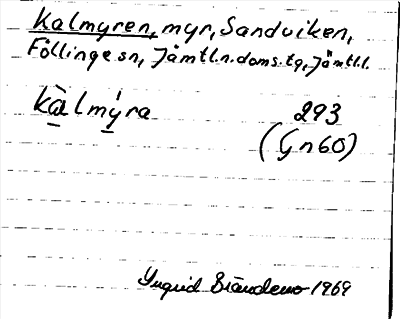 Kalmyren, myr, Sandviken,
Föllinge sn, Jämtl.n.doms.tg, Jämtl.l.
kàlmýra 293
(Gn60)
Yngrid 1969